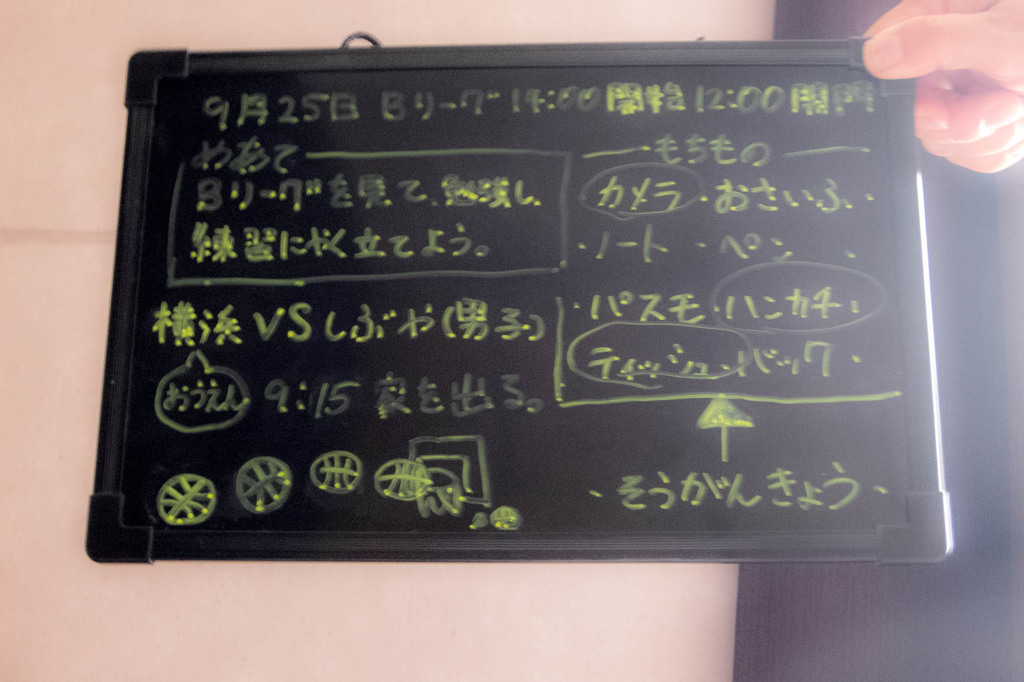 9月25日 Bリーグ 14:00開始 12:00開門
めあて
Bリーグを見て、勉強し
練習にやく立てよう。
もちもの
カメラ・おさいふ・
・ノート・ペン・
・パスモ・ハンカチ・
ティッシュ・バック・
・そうがんきょう・
横浜 VS しぶや(男子)
おうえん
9:15 家を出る。